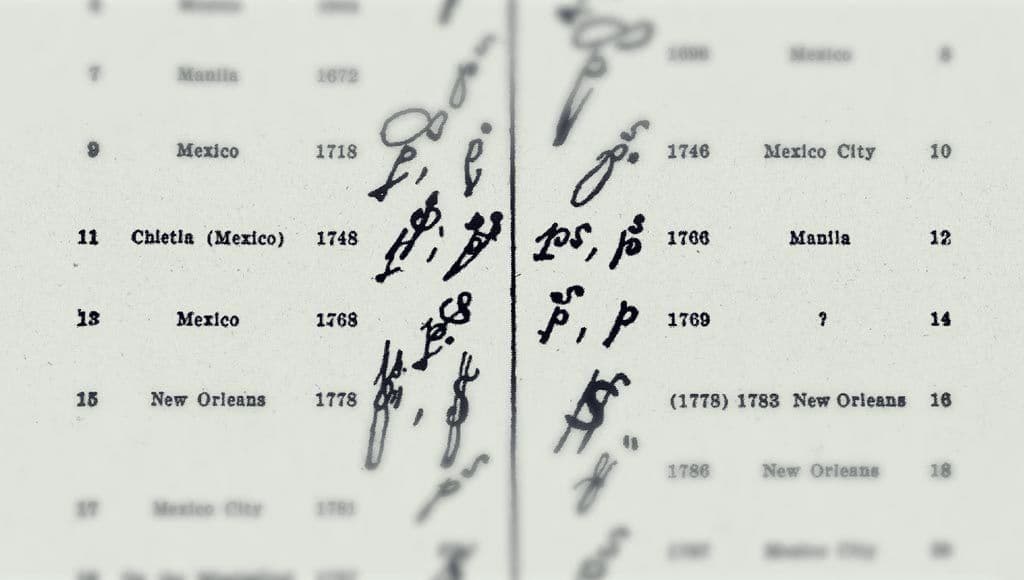 7 Manila 1672
1696 Mexico 8
9 Mexico 1718 p, p.
ps. 1746 Mexico City 10
11 Chietla (Mexico) 1748
ps, ps 1766 Manila 12
13 Mexico 1768 p.s
ps, p 1769 ? 14
15 New Orleans 1778 , $
$ (1778) 1783 New Orleans 16
1786 New Orleans 18
17 Mexico City 1781 ps
1797 Mexico City 20